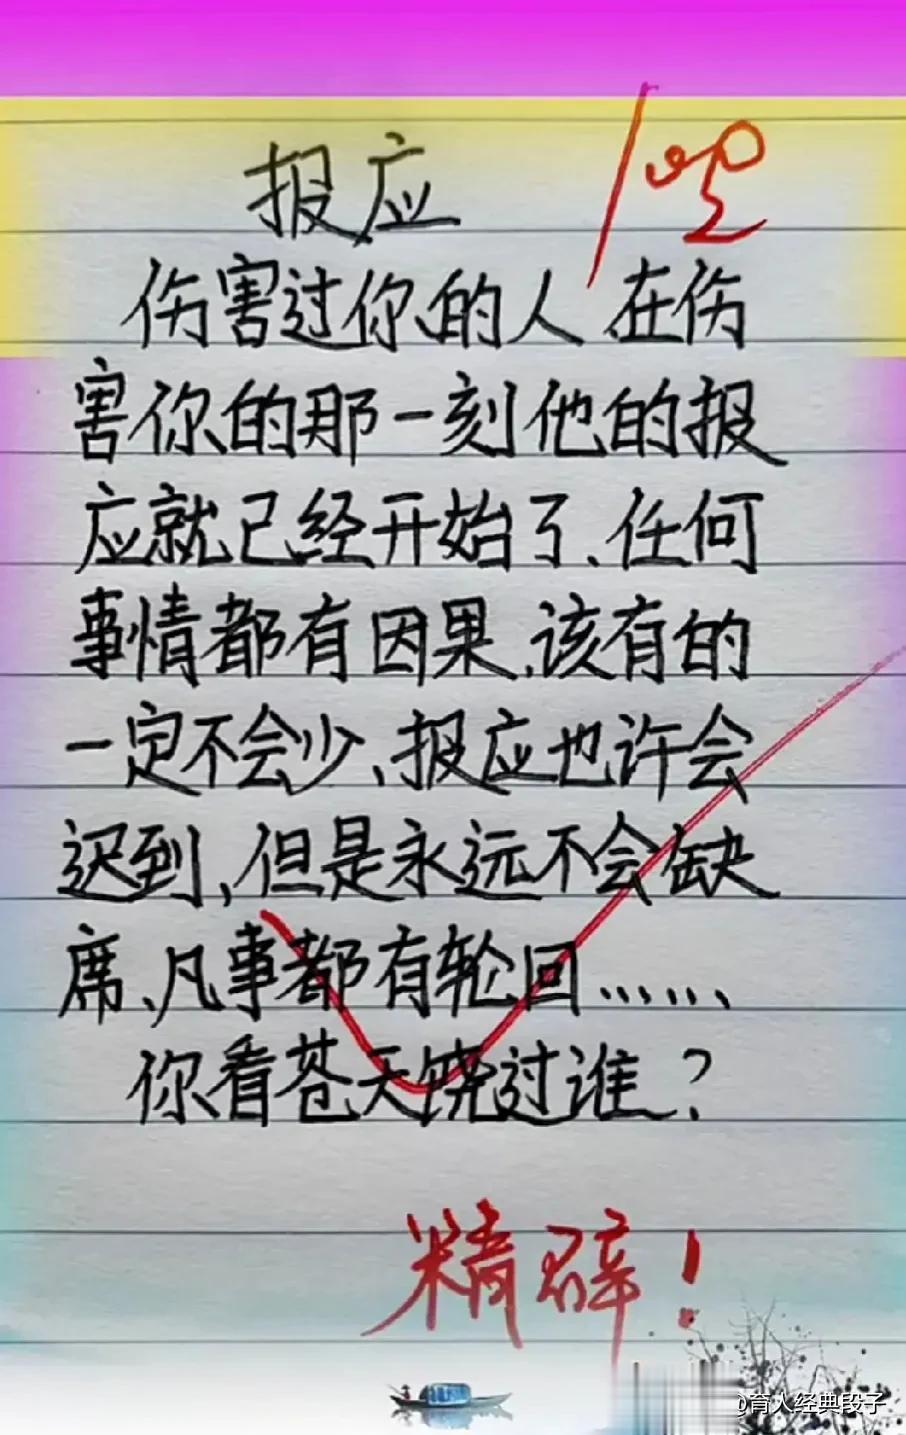 报应
100
伤害过你的人、在伤
害你的那一刻他的报
应就已经开始了、任何
事情都有因果、该有的
一定不会少、报应也许会
迟到、但是永远不会缺
席、凡事都有轮回……
你看苍天饶过谁?
精辟!
@育人经典段子